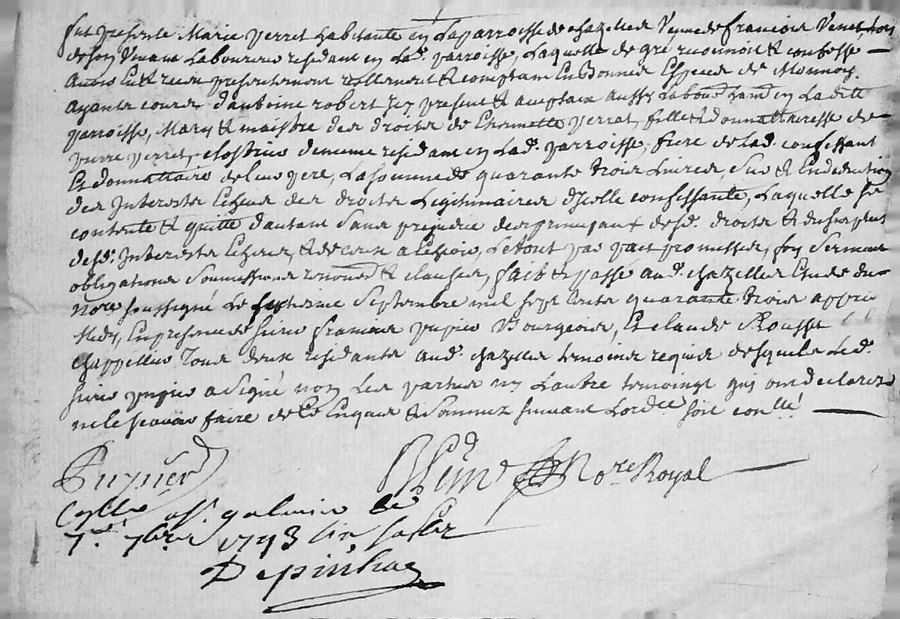 fut presente Marie verret habitante en la parroisse de chazelles veuve de francois
de son vivant Laboureur residant en lad. parroisse, Laquelle de gré reconnoit & confesse
avoir eu & receu presentement réellement & comptant en bonnes Especes de Monnoye
ayants cours d'antoine robert icy present & acceptant aussy Labour en Ladite
parroisse, Mary & maistre des droits de verret, fille & donnattairesse de
pierre verret, residant en Lad. parroisse, frere de lad. confessant
Et donnattaire de Leur pere, La somme de quarante trois Livres, Sur & En deduction
des Interests Echeus des droits Legitimaires d'Icelle confessante, Laquelle se
contente & quitte d'autant sans prejudice des principaux desd. droits & du surplus
desd. Interests Echeus, & de ceux a Echoir, Le tout par pact promesses, foy serment
obligations soumissions renond & clauses, fait & passé aud. chazelles Etude du
no.re soussigné Le septieme septembre mil sept cents quarante trois appres
Midy, En presence de sieur francois pupier Bourgeois, Et claude Rousse
chappellier Tous deux residants aud. chazelles temoins requis desquels Led.
sieur pupier a signé non Les parties ny Lautre temoingt qui ont declarez
ne le scavoir faire de ce Enquis & sommez suivant Lord.ce soit coullé
No.re Royal
Coullé a s.t galmier Le
7.e 7bre 1743 six sols
Depinhac